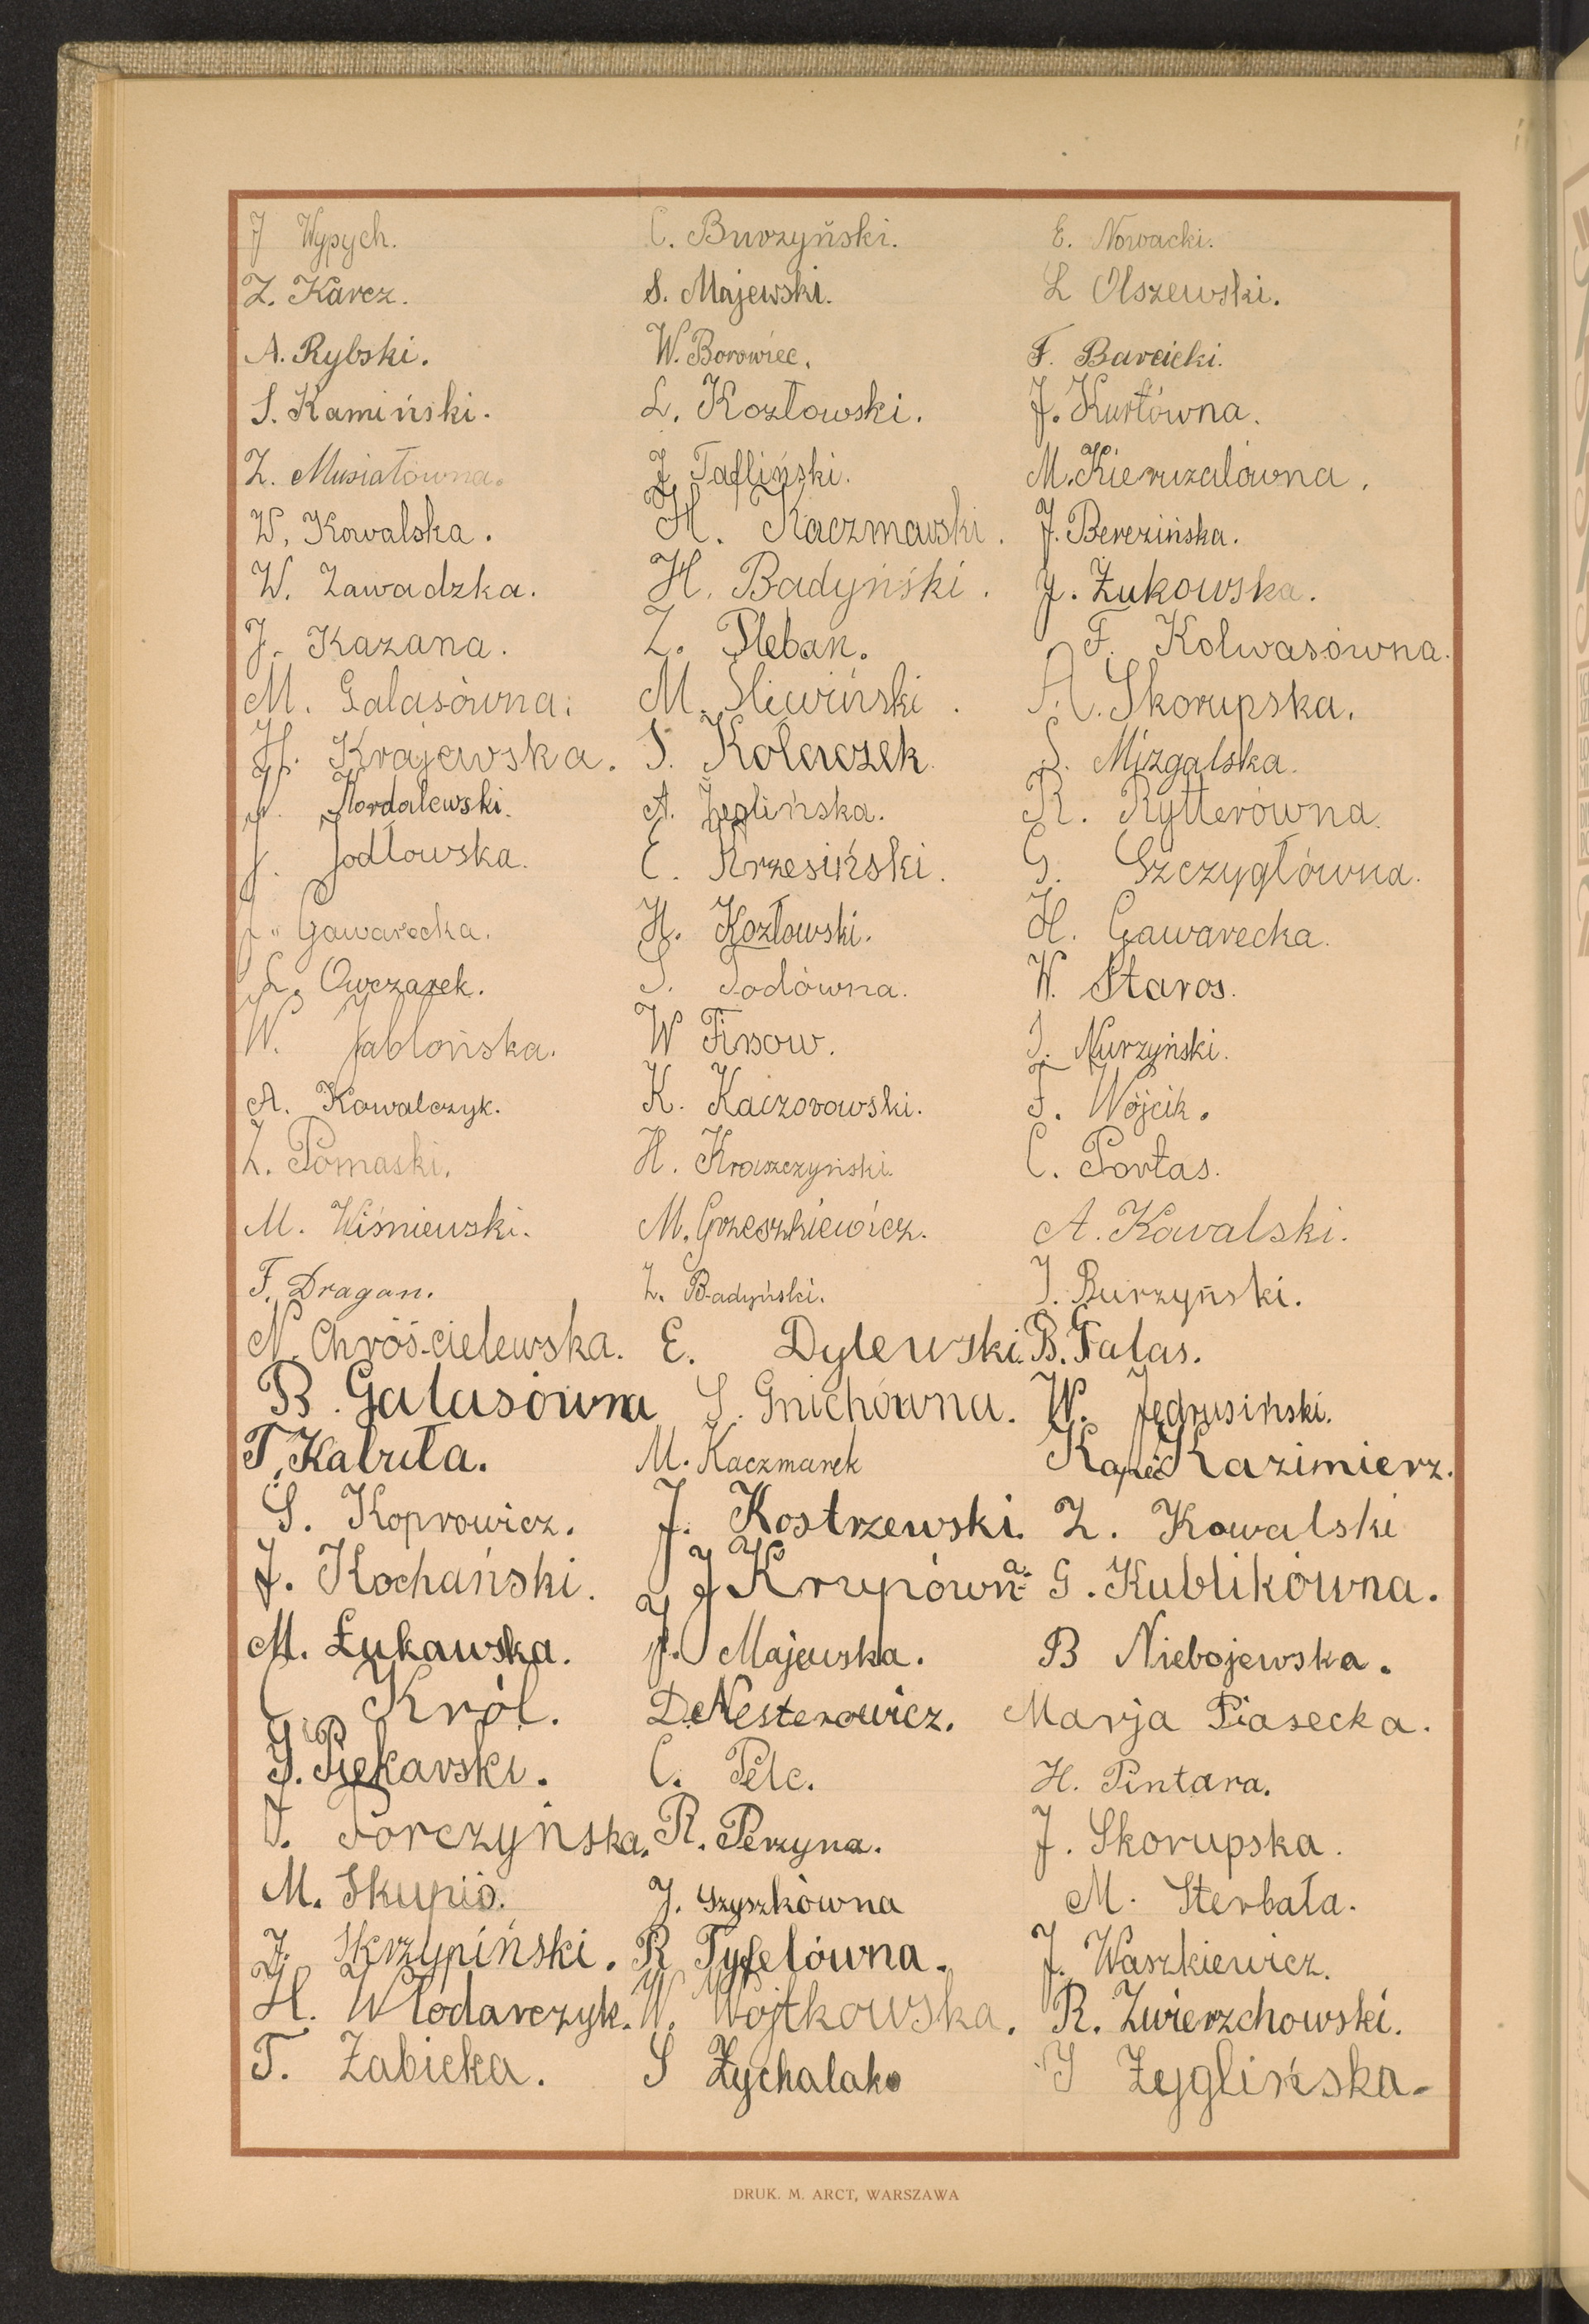 J Wypych. C. Burzyński. E. Nowacki.
Z. Karcz. S. Majewski. L Olszewski.
A. Rybski. W. Borowiec. F. Barcicki.
S. Kamiński. L. Kozłowski. J. Kurłówna.
Z. Musiałówna. J Tafliński. M. Kieruzalówna.
W. Kowalska. H. Kaczmarski. J. Berezińska.
W. Zawadzka. H. Badyński. J. Żukowska.
J. Kazana. Z. Pleban. F. Kolwasówna.
M. Galasówna. M. Śliwiński. A. Skorupska.
H. Krajewska. S. Kołeczek. S. Mizgalska.
J. Mordalewski. A. Żeglińska. R. Rytterówna.
J. Jodłowska. C. Krzesiński. G. Szczygłówna.
J. Gawarecka. H. Kozłowski. H. Gawarecka.
L. Owczarek. S. Sodówna. W. Staros.
W. Jabłońska. W Fissow. J. Nurzyński.
A. Kowalczyk. K. Kaczorowski. F. Wójcik.
Z. Pomaski. H. Kraszczyński. C. Portas.
M. Wiśniewski. M. Grzeszkiewicz. A. Kowalski.
F. Dragan. Z. Badyński. J. Burzyński.
N. Chróścielewska. E. Dylewski. B. Falas.
B. Galasówna S. Gnichówna. W. Jędrusiński.
T. Kabuła. M. Kaczmarek Kapeć Kazimierz.
S. Koprowicz. J. Kostrzewski. Z. Kowalski
J. Kochański. J Krupówna. G. Kublikówna.
M. Łukawska. J. Majewska. B Niebojewska.
C Król. D. Nesterowicz. Marja Piasecka.
J. Piekarski. C. Pelc. H. Pintara.
J. Porczyńska. R. Perzyna. J. Skorupska.
M. Skupio. J. Szyszkówna M. Sterbała.
J. Skrzypiński. R Tyfelówna. J. Waszkiewicz.
H. Włodarczyk. W. Wojtkowska. R. Zwierzchowski.
T. Żabicka. S Żychalak. J Żeyglińska.
DRUK. M. ARCT, WARSZAWA